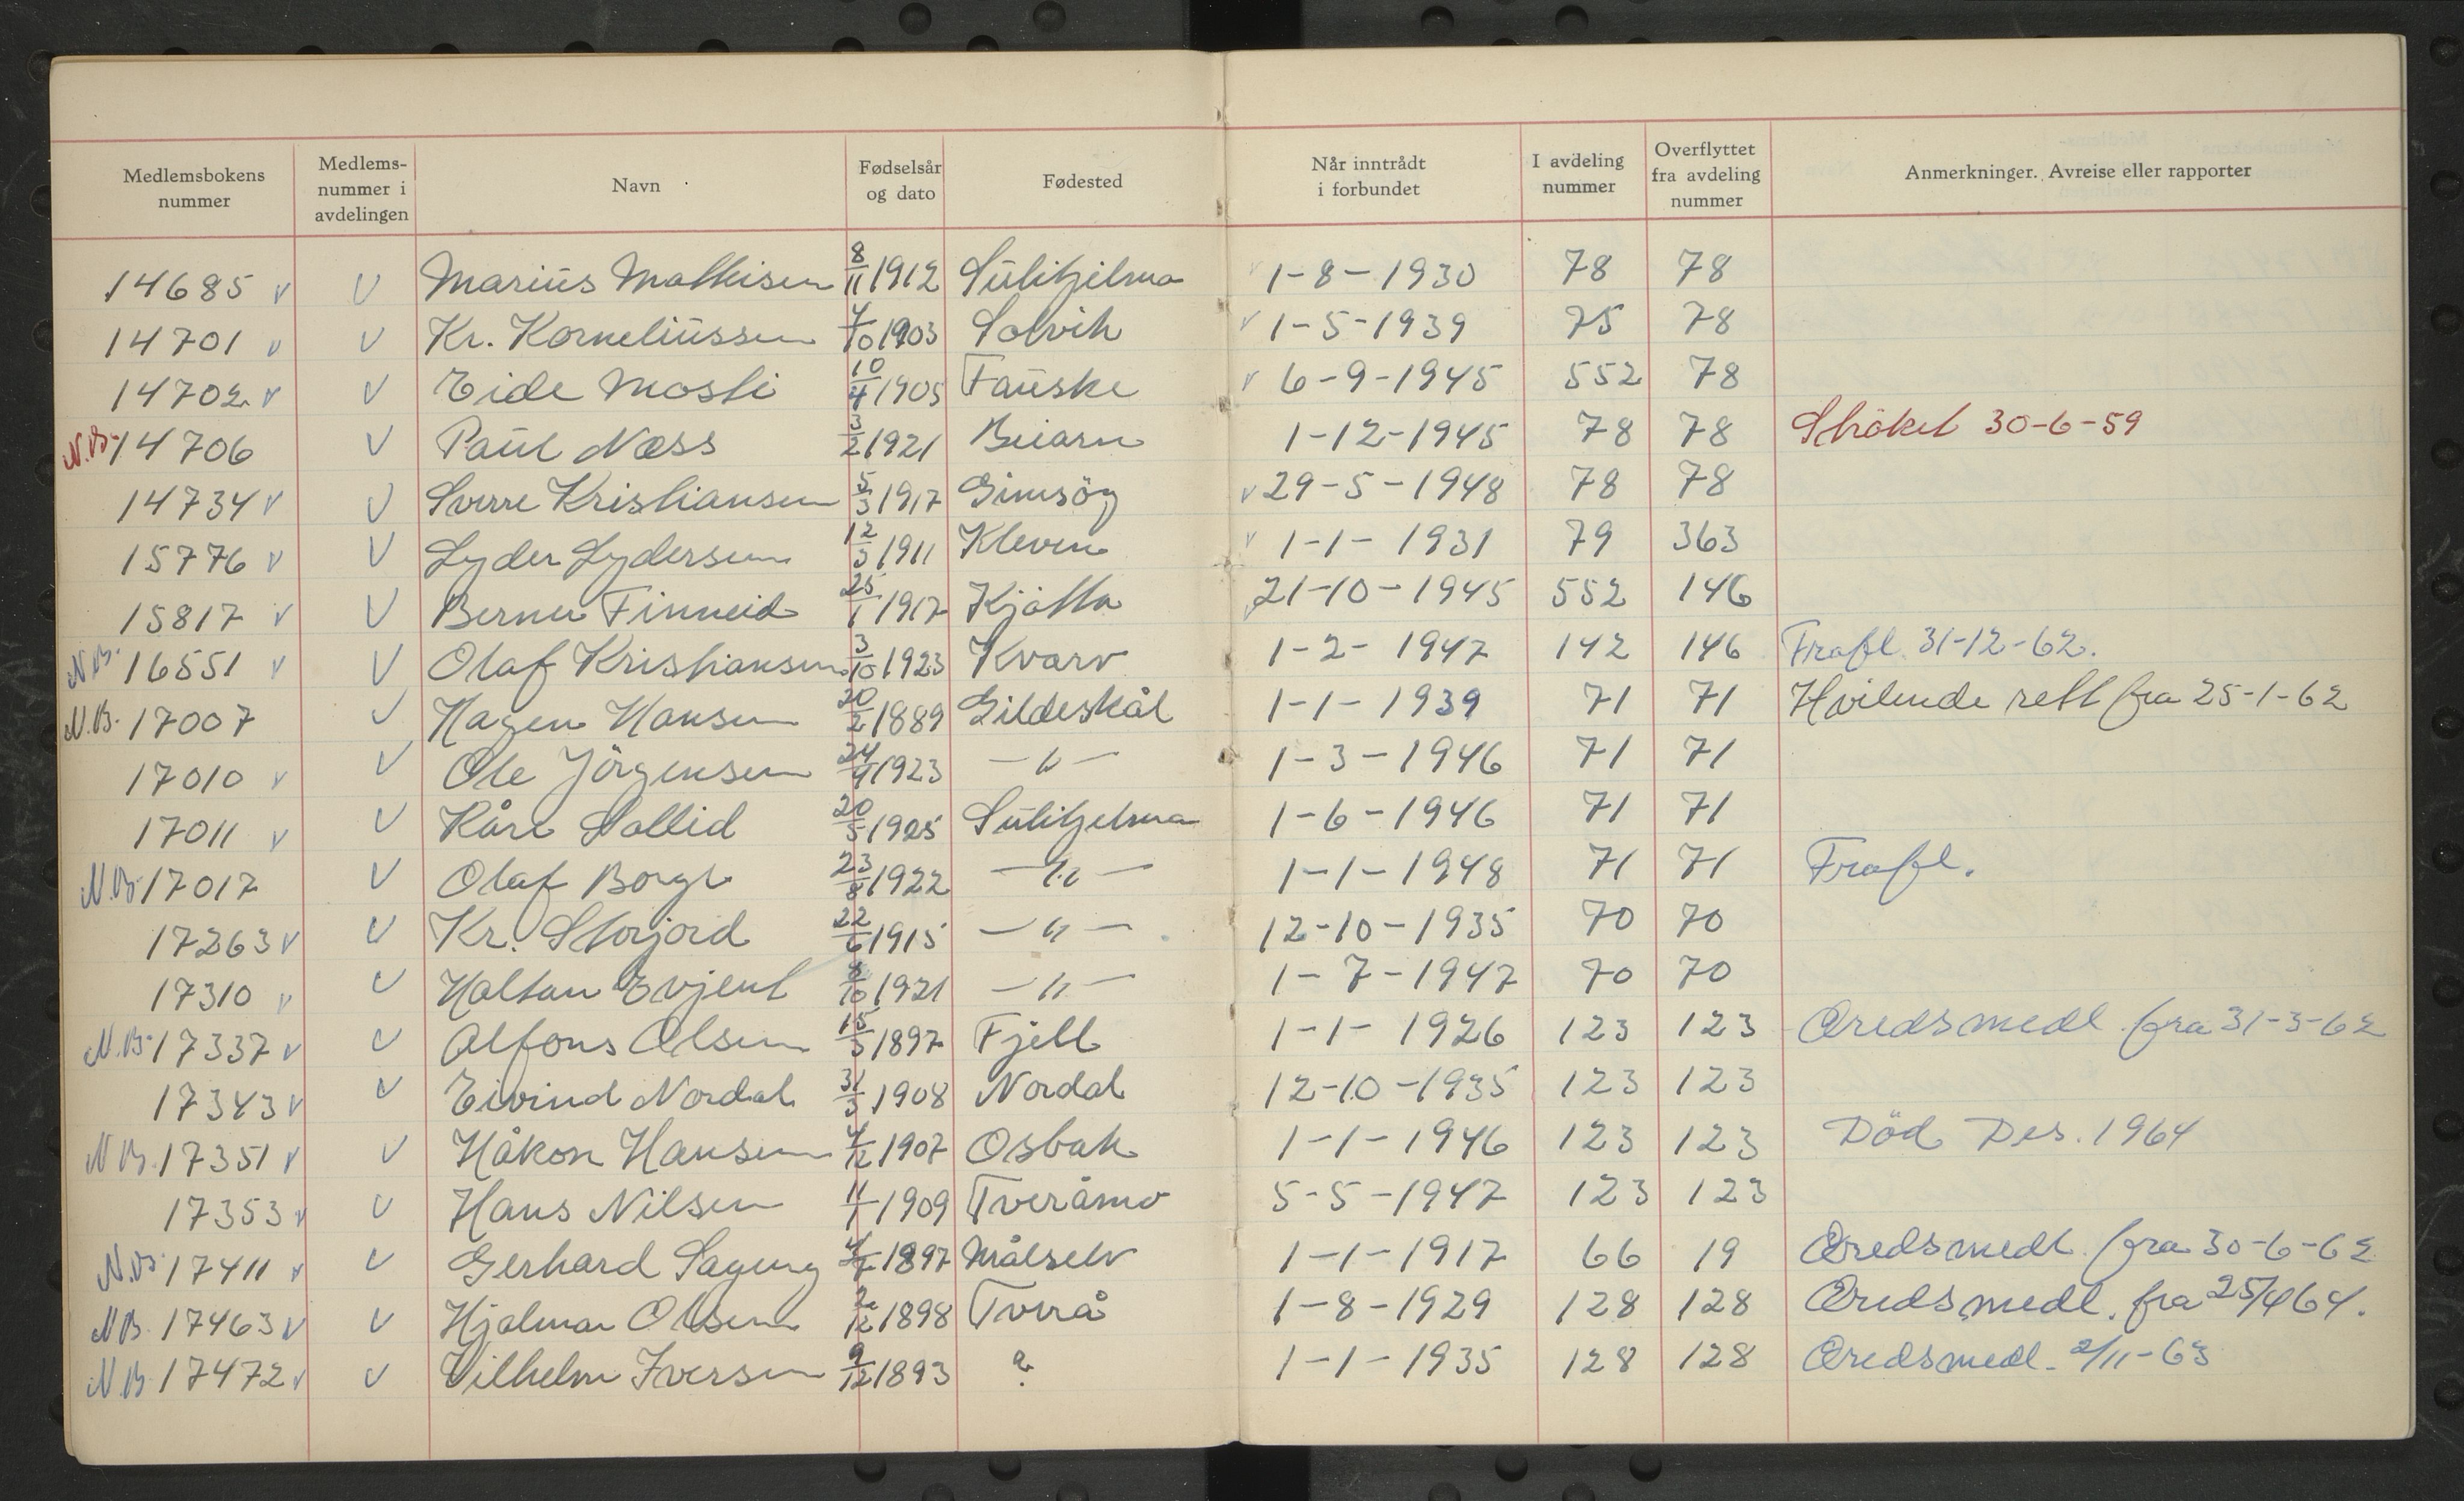 Medlemsbokens nummer | Medlems-nummer i avdelingen | Navn | Fødselsår og dato | Fødested | Når inntrådt i forbundet | I avdeling nummer | Overflyttet fra avdeling nummer | Anmerkninger. Avreise eller rapporter
14685 v | v | Marius Mathisen | 8/11 1912 | Sulitjelma | v 1-8-1930 | 78 | 78
14701 v | v | Kr. Korneliussen | 4/10 1903 | Solvik | v 1-5-1939 | 75 | 78
14702 v | v | Eide Mosti | 10/4 1905 | Fauske | v 6-9-1945 | 552 | 78
N.B. 14706 | v | Paul Næss | 3/2 1921 | Beiarn | 1-12-1945 | 78 | 78 | Strøket 30-6-59
14734 v | v | Sverre Kristiansen | 5/3 1917 | Gimsöy | v 29-5-1948 | 78 | 78
15776 v | v | Lyder Lydersen | 12/3 1911 | Kleven | v 1-1-1931 | 79 | 363
15817 v | v | Berner Finneid | 25/1 1917 | v 21-10-1945 | 552 | 146
N.B. 16551 v | v | Olaf Kristiansen | 3/10 1923 | Kvarv | 1-2-1947 | 142 | 146 | Frafl. 31-12-62.
N.B. 17007 | v | Hagen Hansen | 20/2 1889 | Gildeskål | 1-1-1939 | 71 | 71 | Hvilende rett fra 25-1-62
17010 v | v | Ole Jörgensen | 24/9 1923 | -"- | 1-3-1946 | 71 | 71
17011 v | v | Kåre Vallid | 20/5 1925 | Sulitjelma | 1-6-1946 | 71 | 71
N.B. 17017 | v | Olaf Borge | 23/8 1922 | -"- | 1-1-1948 | 71 | 71 | Frafl.
17263 v | v | Kr. Storjord | 22/6 1915 | -"- | 12-10-1935 | 70 | 70
17310 v | v | Halfan Evjent | 8/10 1921 | -"- | 1-7-1947 | 70 | 70
N.B. 17337 v | v | Alfons Olsen | 15/5 1897 | Fjell | 1-1-1926 | 123 | 123 | Æredsmedl. fra 31-3-62
17343 v | v | Eivind Nordal | 31/3 1908 | Nordal | 12-10-1935 | 123 | 123
N.B. 17351 v | v | Håkon Hansen | 4/12 1907 | Osbak | 1-1-1946 | 123 | 123 | Död Des. 1964
17353 v | v | Hans Nilsen | 11/1 1909 | Tveråmo | 5-5-1947 | 123 | 123
N.B. 17411 v | v | Gerhard Sagung | 4/7 1897 | Målselv | 1-1-1917 | 66 | 19 | Æredsmedl. fra 30-6-62
N.B. 17463 v | v | Hjalmar Olsen | 2/12 1898 | Tverå | 1-8-1929 | 128 | 128 | Æredsmedl. fra 25/4 64.
N.B. 17472 v | v | Vilhelm Iversen | 9/12 1893 | ? | 1-1-1935 | 128 | 128 | Æredsmedl. 2/11-63